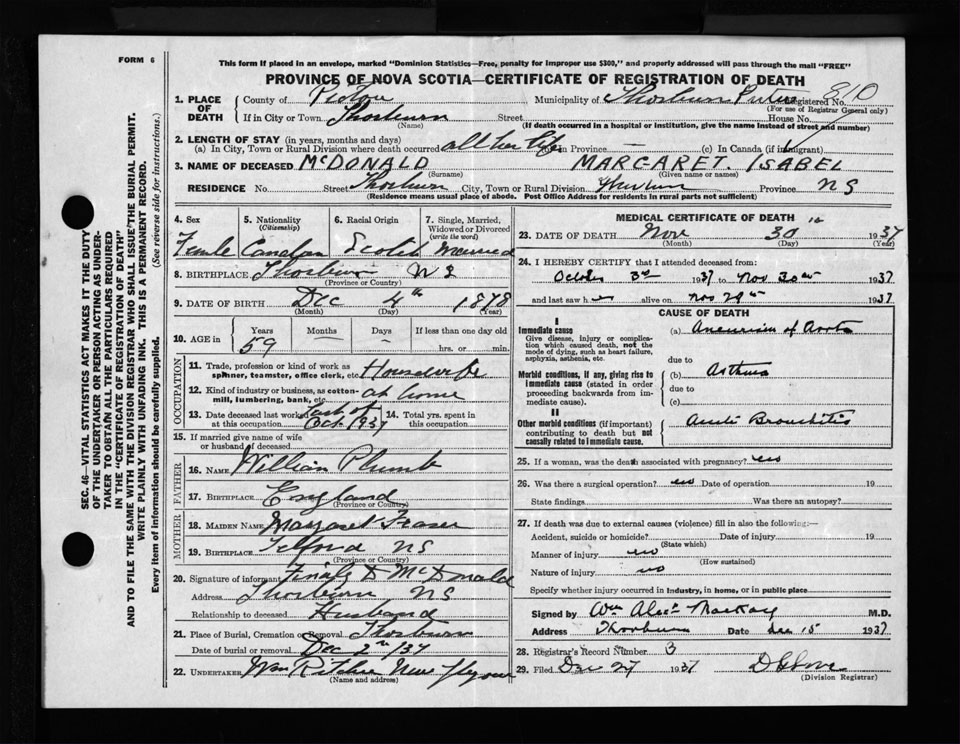 FORM 6
This form if placed in an envelope, marked "Dominion Statistics—Free, penalty for improper use $300," and properly addressed will pass through the mail "FREE"
PROVINCE OF NOVA SCOTIA—CERTIFICATE OF REGISTRATION OF DEATH
1. PLACE OF DEATH
County of Pictou Municipality of Thorburn Registered No. 810
(For use of Registrar General only)
If in City or Town Thorburn Street House No.
(Name) (If death occurred in a hospital or institution, give the name instead of street and number)
2. LENGTH OF STAY (in years, months and days)
(a) In City, Town or Rural Division where death occurred all her life (b) in Province — (c) In Canada (if immigrant)
3. NAME OF DECEASED McDONALD MARGARET. ISABEL
(Surname) (Given name or names)
RESIDENCE No. Street Thorburn City, Town or Rural Division Thorburn Province NS
(Residence means usual place of abode. Post Office Address for residents in rural parts not sufficient)
4. Sex
Female
5. Nationality (Citizenship)
Canadian
6. Racial Origin
Scotch
7. Single, Married, Widowed or Divorced (write the word)
Married
8. BIRTHPLACE Thorburn N S
(Province or Country)
9. DATE OF BIRTH Dec 4th 1878
(Month) (Day) (Year)
10. AGE in Years Months Days If less than one day old
59 — — hrs. or min.
OCCUPATION
11. Trade, profession or kind of work as spinner, teamster, office clerk, etc. Housewife
12. Kind of industry or business, as cotton-mill, lumbering, bank, etc. at home
13. Date deceased last worked at this occupation last of Oct. 1937
14. Total yrs. spent in this occupation
15. If married give name of wife or husband of deceased
FATHER
16. NAME William Plumb
17. BIRTHPLACE England
(Province or Country)
MOTHER
18. MAIDEN NAME Margaret Fraser
19. BIRTHPLACE Telford NS
(Province or Country)
20. Signature of informant Finlay D McDonald
Address Thorburn NS
Relationship to deceased Husband
21. Place of Burial, Cremation or Removal Thorburn
Date of burial or removal Dec 2nd/37
22. UNDERTAKER Wm Ritchie New Glasgow
(Name and address)
MEDICAL CERTIFICATE OF DEATH
23. DATE OF DEATH Nov 30th 1937
(Month) (Day) (Year)
24. I HEREBY CERTIFY that I attended deceased from:
October 3rd 1937 to Nov 30th 1937
and last saw her alive on Nov 29th 1937
CAUSE OF DEATH
I
Immediate cause
Give disease, injury or complication which caused death, not the mode of dying, such as heart failure, asphyxia, asthenia, etc.
(a) Aneurism of Aorta
due to
Morbid conditions, if any, giving rise to immediate cause (stated in order proceeding backwards from immediate cause).
(b) Asthma
due to
(c)
II
Other morbid conditions (if important) contributing to death but not causally related to immediate cause.
Acute Bronchitis
25. If a woman, was the death associated with pregnancy? no
26. Was there a surgical operation? no Date of operation 19
State findings Was there an autopsy?
27. If death was due to external causes (violence) fill in also the following:—
Accident, suicide or homicide? Date of injury 19
(State which)
Manner of injury no
(How sustained)
Nature of injury no
Specify whether injury occurred in industry, in home, or in public place
Signed by Wm Alex MacKay M.D.
Address Thorburn Date Dec 15 1937
28. Registrar's Record Number
29. Filed Dec 27 1937
(Division Registrar)
SEC. 46—VITAL STATISTICS ACT MAKES IT THE DUTY
OF THE UNDERTAKER OR PERSON ACTING AS UNDER-
TAKER TO OBTAIN ALL THE PARTICULARS REQUIRED
IN THE "CERTIFICATE OF REGISTRATION OF DEATH"
AND TO FILE THE SAME WITH THE DIVISION REGISTRAR WHO SHALL ISSUE THE BURIAL PERMIT.
WRITE PLAINLY WITH UNFADING INK. THIS IS A PERMANENT RECORD.
Every item of information should be carefully supplied. (See reverse side for instructions.)